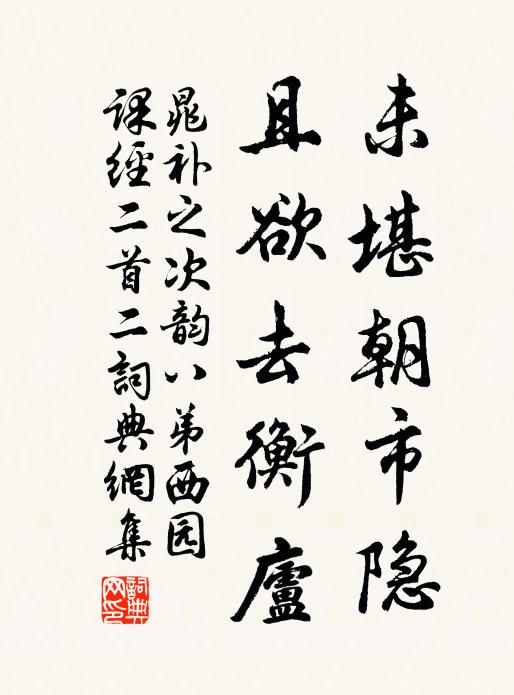 未堪朝市隐
且欲去衡廬
晁补之次韵八弟西园
课經二首二詞典網集
詞典网印